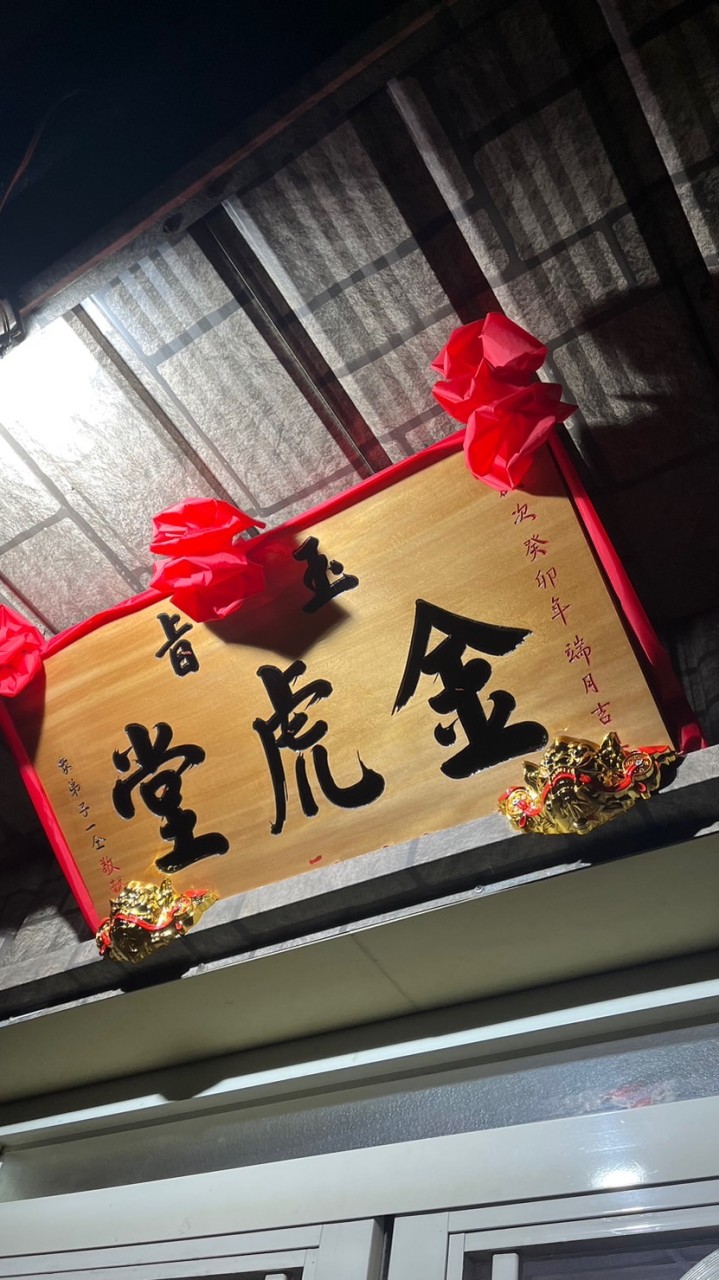 玉旨
金虎堂
次癸卯年端月吉
弟子一仝敬